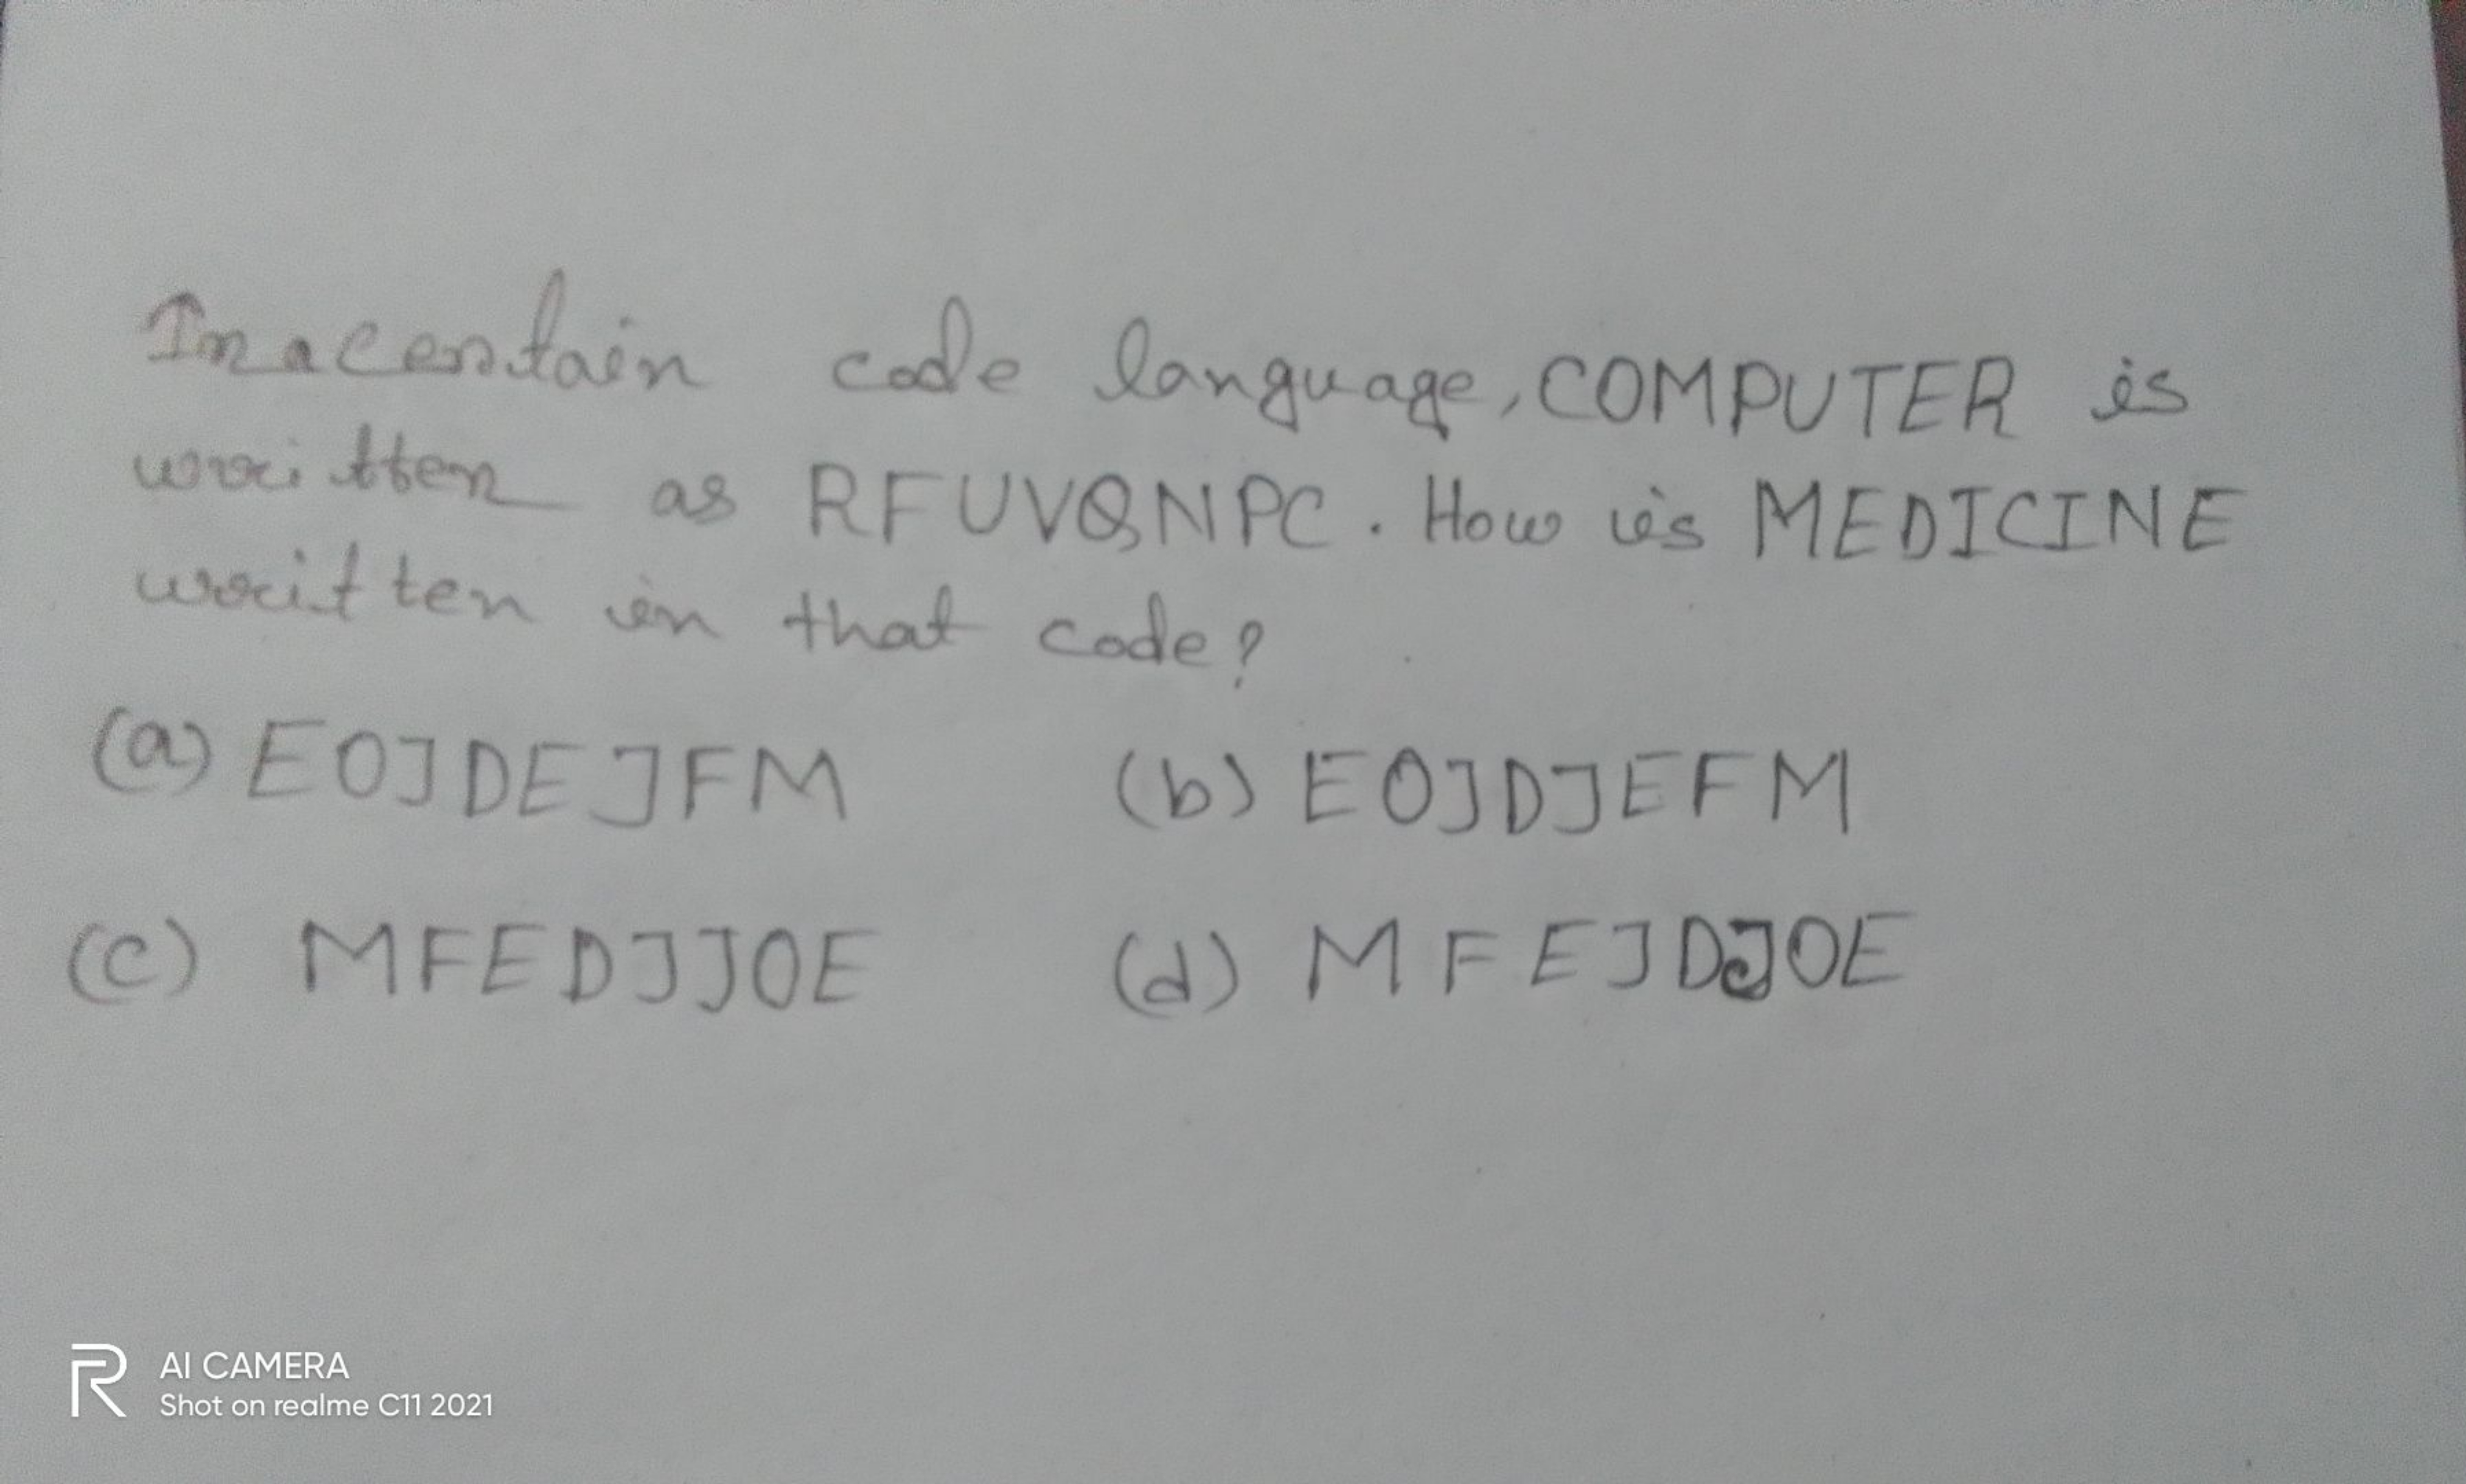 In a certain code language, COMPUTER is
written as RFUVQNPC. How is MEDICINE
written in that code?
(a) EOJDEJFM (b) EOJDJEFM
(c) MFEDJJOE (d) MFEJDJOE
AI CAMERA
Shot on realme C11 2021